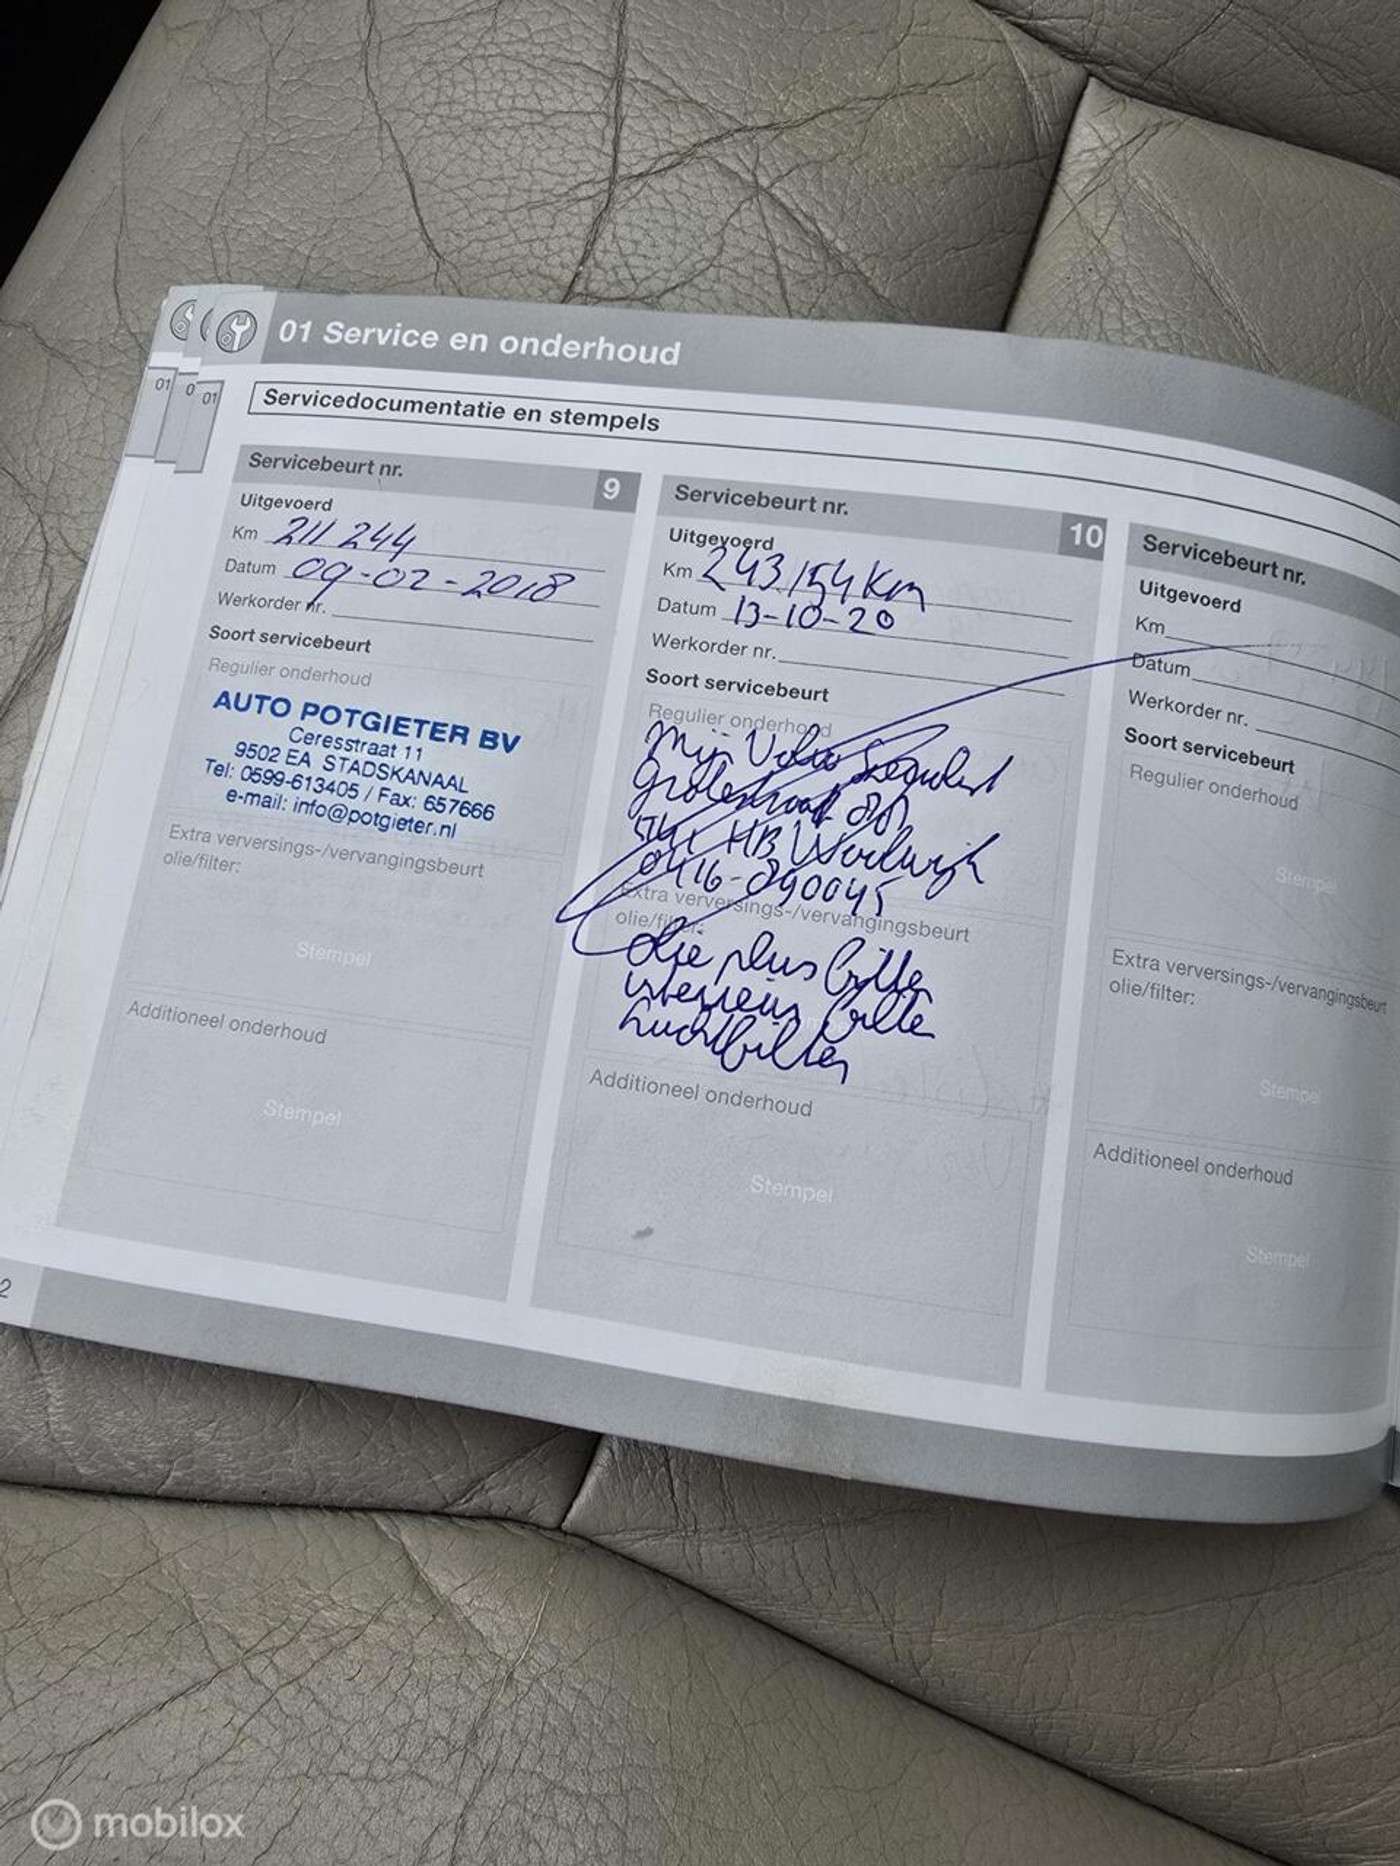 01 Service en onderhoud
01
0
01
Servicedocumentatie en stempels
Servicebeurt nr. 9
Uitgevoerd
Km 211 244
Datum 09-02-2018
Werkorder nr.
Soort servicebeurt
Regulier onderhoud
AUTO POTGIETER BV
Ceresstraat 11
9502 EA STADSKANAAL
Tel: 0599-613405 / Fax: 657666
e-mail: info@potgieter.nl
Extra verversings-/vervangingsbeurt
olie/filter:
Stempel
Additioneel onderhoud
Stempel
Servicebeurt nr. 10
Uitgevoerd
Km 243.154 Km
Datum 13-10-20
Werkorder nr.
Soort servicebeurt
Regulier onderhoud
Mijn Volvo
HB
0416-890045
Extra verversings-/vervangingsbeurt
olie/filter:
olie plus filter
interieur filter
Luchtfilter
Additioneel onderhoud
Stempel
Servicebeurt nr.
Uitgevoerd
Km
Datum
Werkorder nr.
Soort servicebeurt
Regulier onderhoud
Stempel
Extra verversings-/vervangingsbeurt
olie/filter:
Stempel
Additioneel onderhoud
Stempel
2
mobilox